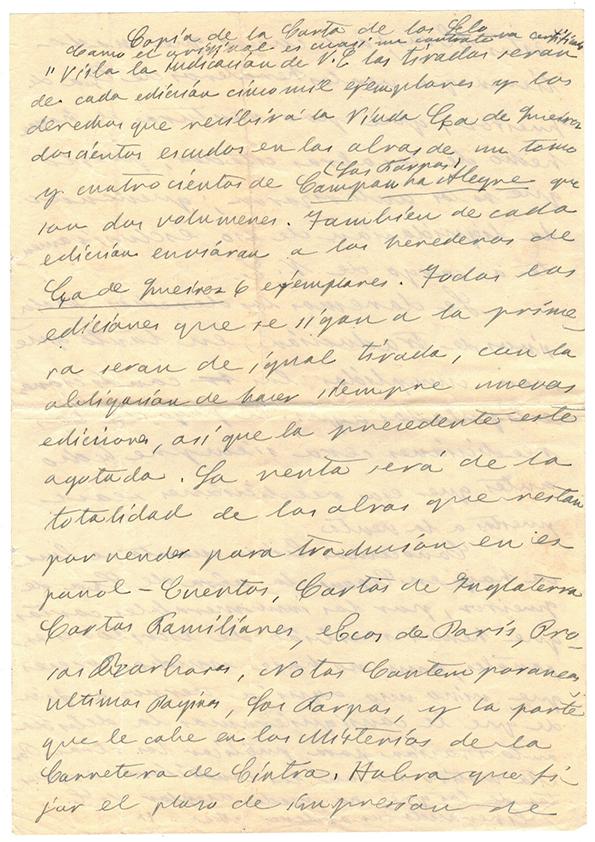 Copia de la Carta de los
Como el original es cuasi un contrato va
"Vista la indicación de V. E. las tiradas serán
de cada edición cinco mil ejemplares y los
derechos que recibirá la Viuda Eça de Queiroz
doscientos escudos en las obras de un tomo
(Las Farpas)
y cuatrocientos de Campanha Alegre que
son dos volumenes. Tambien de cada
edición enviáran a los herederos de
Eça de Queiroz 6 ejemplares. Todas las
ediciones que se sigan a la prime
ra seran de igual tirada, con la
obligación de hacer siempre nuevas
ediciones, así que la precedente este
agotada. La venta será de la
totalidad de las obras que restan
por vender para traducion en es
pañol - Cuentos, Cartas de Inglaterra
Cartas Familiares, eEcos de París, Pro
sas Barbaras, Notas Contemporaneas,
ultimas Paginas, Las Farpas, y la parte
que le cabe en los Misterios de la
Carretera de Cintra. Habra que fi
jar el plaso de impresion de